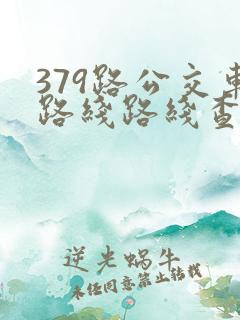 379路公交车
路线路线查
逆光蜗牛
未经同意禁止转载